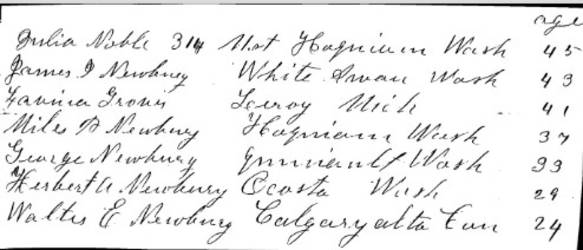 age
Julia Noble 314 Hoquiam Wash 45
James I Newbury White Swan Wash 43
Lavina Grovis Leroy Mich 41
Miles Newbury Hoquiam Wash 37
George Newbury Wash 33
Herbert A Newbury Ocosta Wash 29
Walter E Newbury Calgary alta Can 24